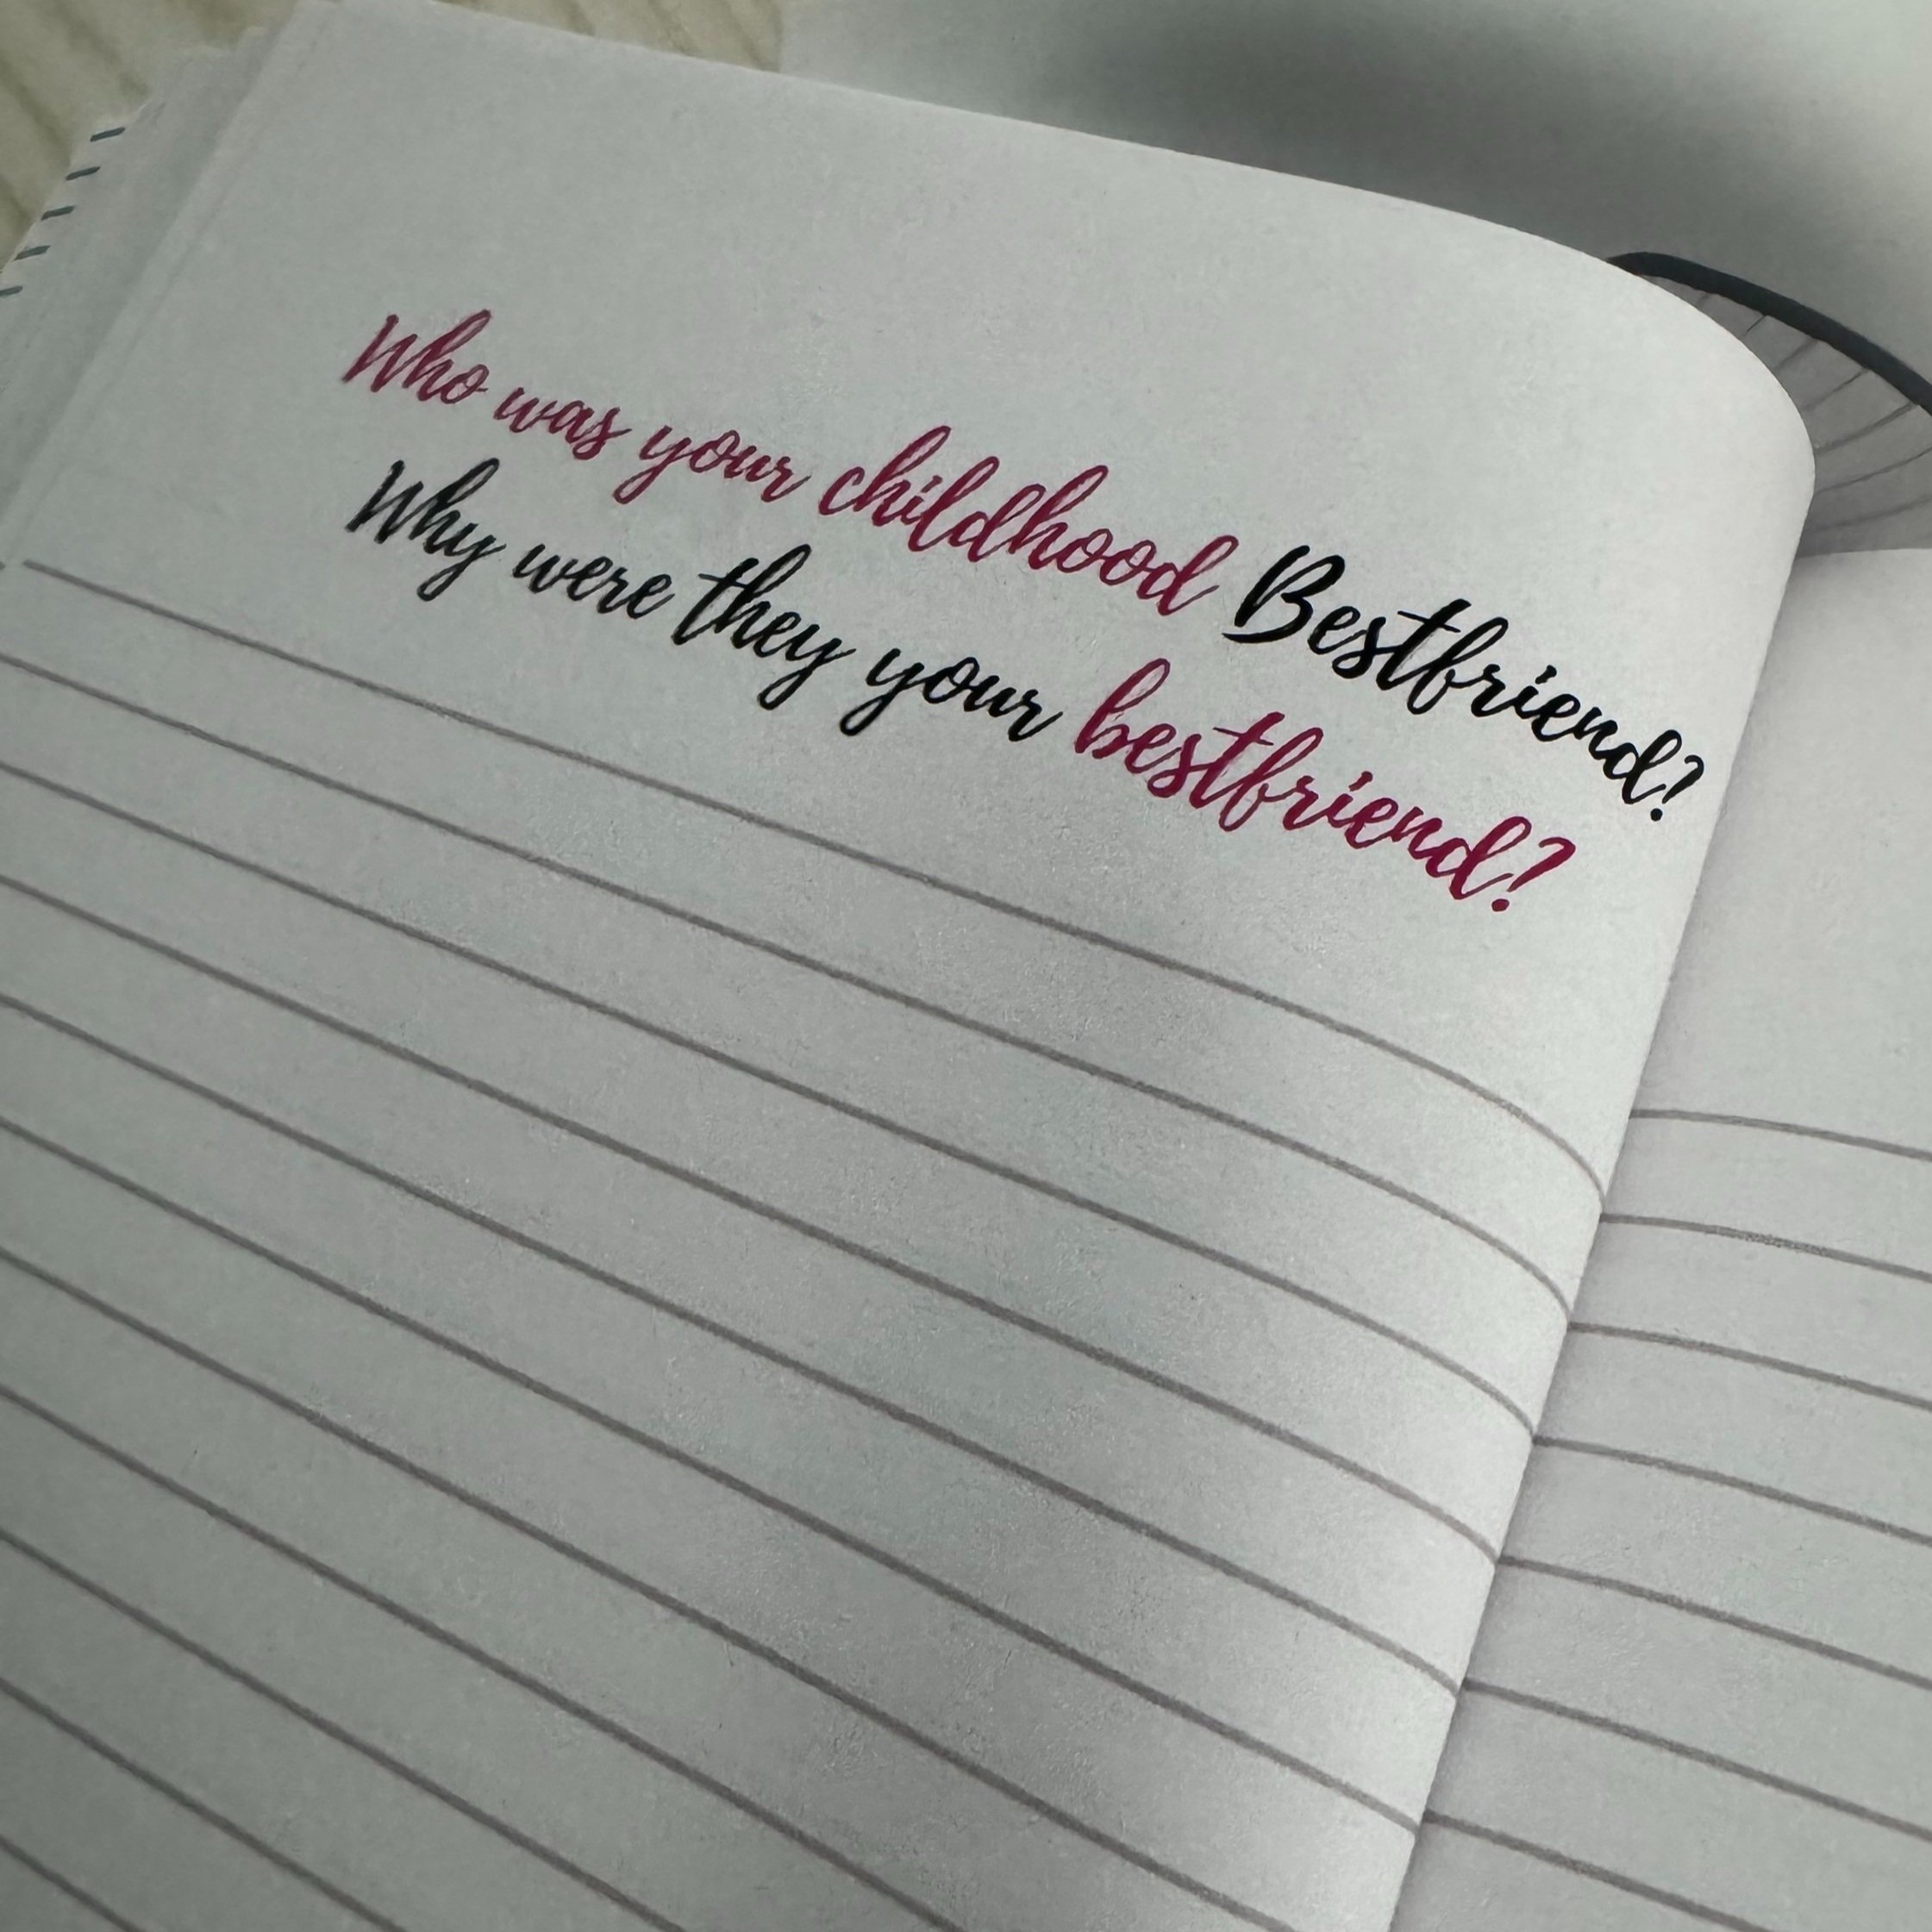 Who was your childhood Bestfriend?
Why were they your bestfriend?